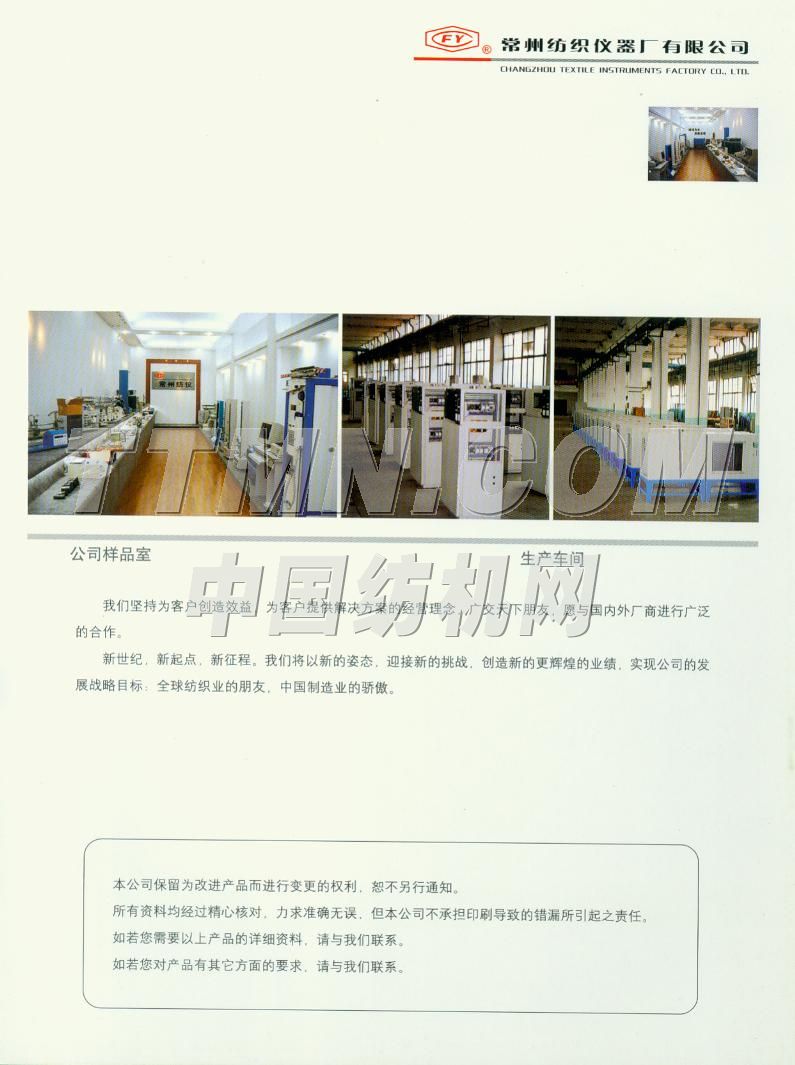 FY ®
常州纺织仪器厂有限公司
CHANGZHOU TEXTILE INSTRUMENTS FACTORY CO., LTD.
常州纺仪
TTMN.COM
公司样品室
生产车间
中国纺机网
我们坚持为客户创造效益，为客户提供解决方案的经营理念，广交天下朋友，愿与国内外厂商进行广泛
的合作。
新世纪，新起点，新征程。我们将以新的姿态，迎接新的挑战，创造新的更辉煌的业绩，实现公司的发
展战略目标：全球纺织业的朋友，中国制造业的骄傲。
本公司保留为改进产品而进行变更的权利，恕不另行通知。
所有资料均经过精心核对，力求准确无误，但本公司不承担印刷导致的错漏所引起之责任。
如若您需要以上产品的详细资料，请与我们联系。
如若您对产品有其它方面的要求，请与我们联系。